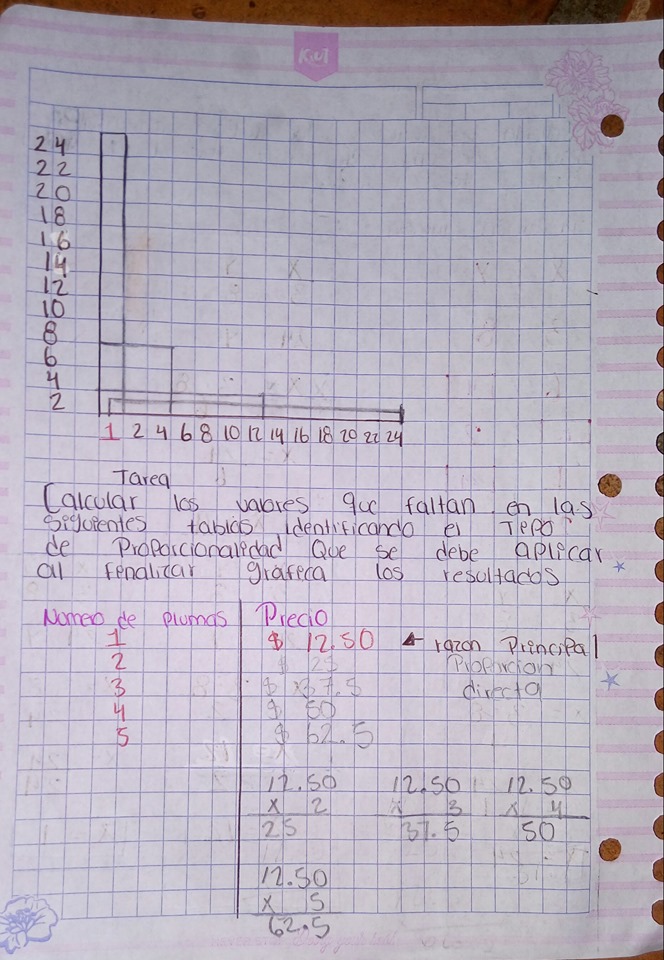 KIUT
24
22
20
18
16
14
12
10
8
6
4
2
1 2 4 6 8 10 12 14 16 18 20 22 24
Tarea
Calcular los valores que faltan en las
siguientes tablas identificando el Tepo
de Proporcionaledad Que se debe aplicar
al fenalizar grafeca los resultados
Numero de plumas Precio
1 $ 12.50 ← razon Principal
2 $ 25 Proporcion
3 $ 37.5 directa
4 $ 50
5 $ 62.5
12.50 12.50 12.50
x 2 x 3 x 4
25 37.5 50
12.50
x 5
62.5